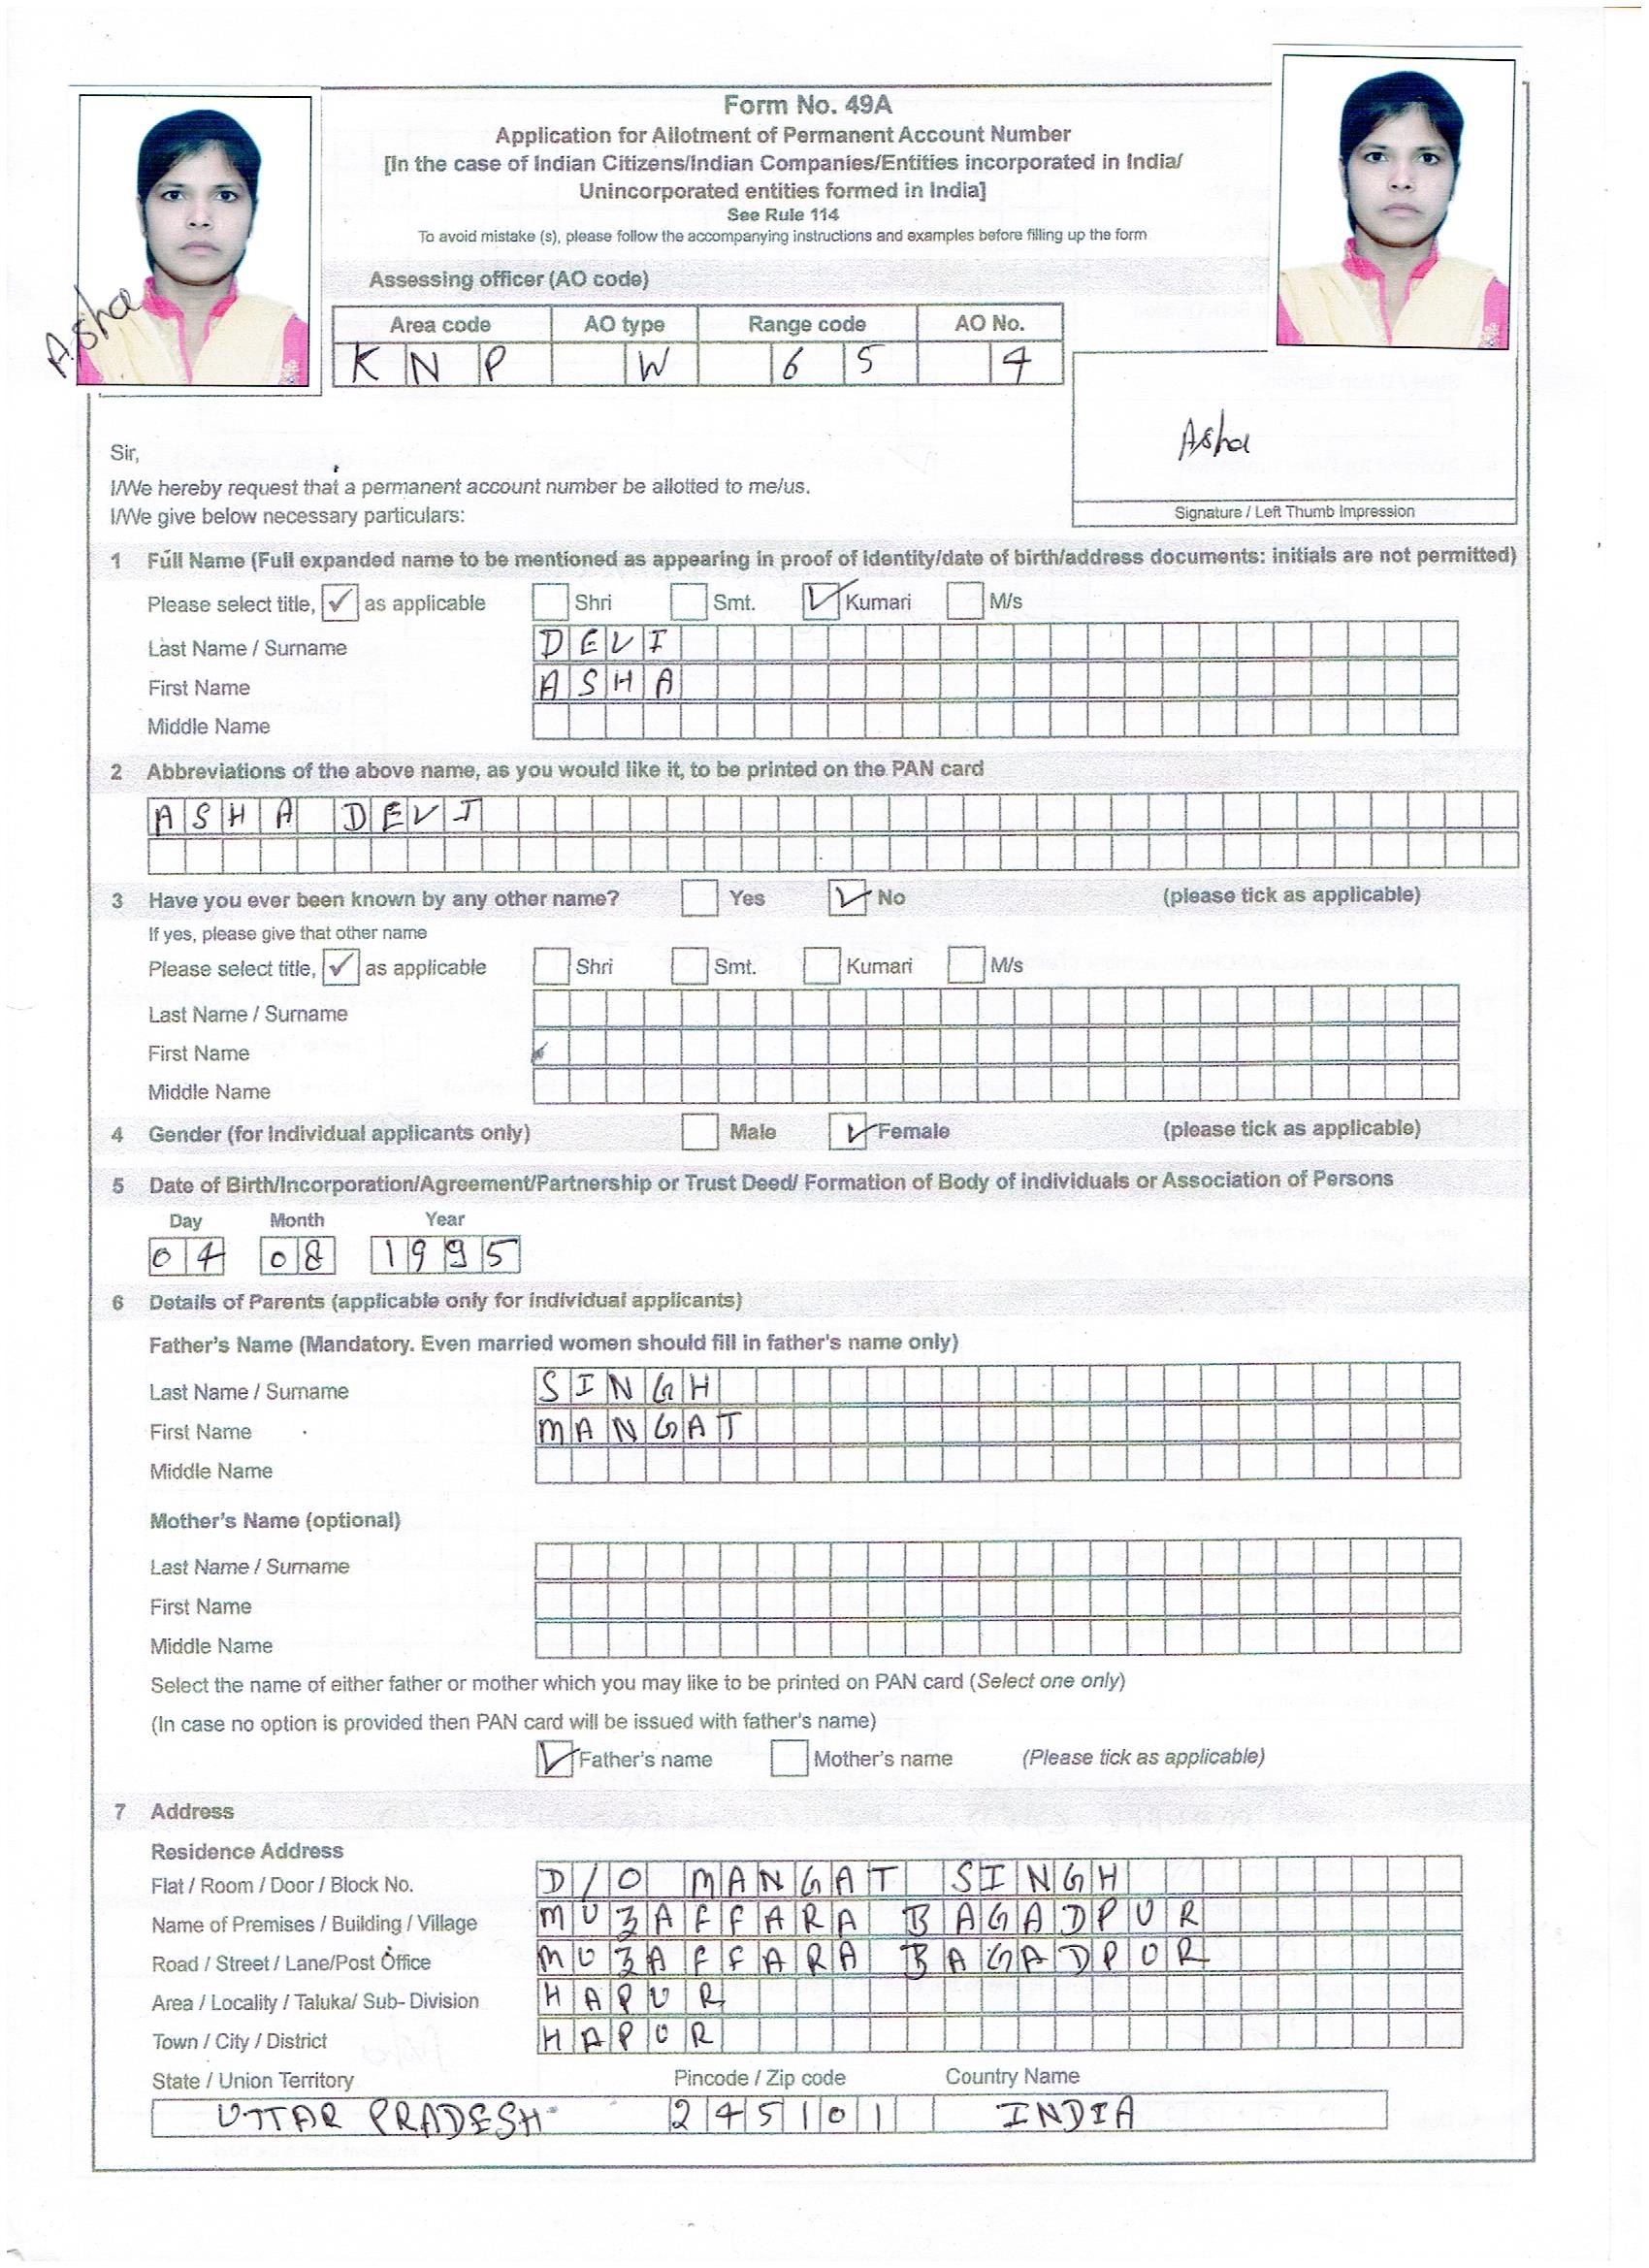 Form No. 49A
Application for Allotment of Permanent Account Number
[In the case of Indian Citizens/Indian Companies/Entities incorporated in India/
Unincorporated entities formed in India]
See Rule 114
To avoid mistake (s), please follow the accompanying instructions and examples before filling up the form
Asha
Assessing officer (AO code)
Area code AO type Range code AO No.
K N P W 6 5 4
Asha
Signature / Left Thumb Impression
Sir,
I/We hereby request that a permanent account number be allotted to me/us.
I/We give below necessary particulars:
1 Full Name (Full expanded name to be mentioned as appearing in proof of identity/date of birth/address documents: initials are not permitted)
Please select title, ✓ as applicable Shri Smt. ✓ Kumari M/s
Last Name / Surname DEVI
First Name ASHA
Middle Name
2 Abbreviations of the above name, as you would like it, to be printed on the PAN card
ASHA DEVI
3 Have you ever been known by any other name? Yes ✓ No (please tick as applicable)
If yes, please give that other name
Please select title, ✓ as applicable Shri Smt. Kumari M/s
Last Name / Surname
First Name
Middle Name
4 Gender (for Individual applicants only) Male ✓ Female (please tick as applicable)
5 Date of Birth/Incorporation/Agreement/Partnership or Trust Deed/ Formation of Body of individuals or Association of Persons
Day Month Year
04 08 1995
6 Details of Parents (applicable only for individual applicants)
Father's Name (Mandatory. Even married women should fill in father's name only)
Last Name / Surname SINGH
First Name MANGAT
Middle Name
Mother's Name (optional)
Last Name / Surname
First Name
Middle Name
Select the name of either father or mother which you may like to be printed on PAN card (Select one only)
(In case no option is provided then PAN card will be issued with father's name)
✓ Father's name Mother's name (Please tick as applicable)
7 Address
Residence Address
Flat / Room / Door / Block No. D/O MANGAT SINGH
Name of Premises / Building / Village MUZAFFARA BAGADPUR
Road / Street / Lane/Post Office MUZAFFARA BAGADPUR
Area / Locality / Taluka/ Sub- Division HAPUR
Town / City / District HAPUR
State / Union Territory Pincode / Zip code Country Name
UTTAR PRADESH 245101 INDIA